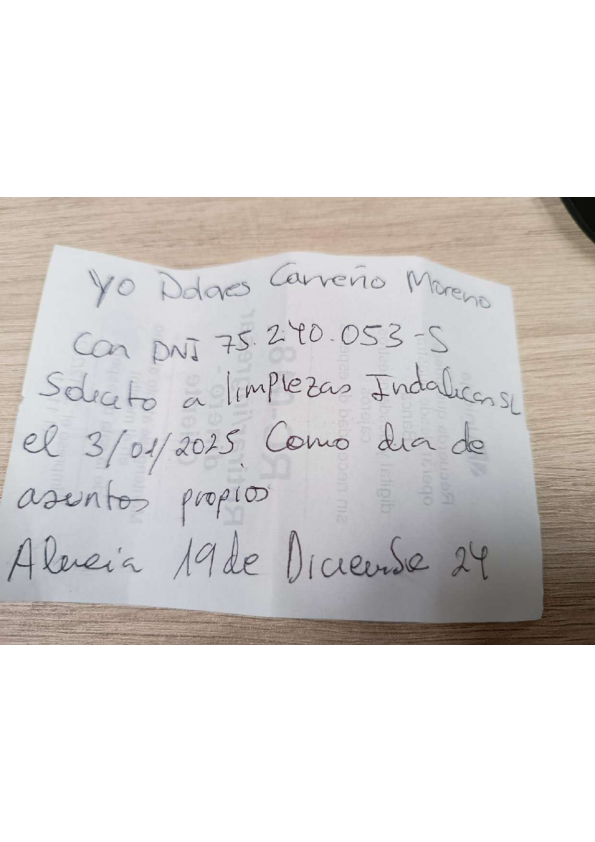 Yo Dolores Carreño Moreno
Con DNI 75.240.053-S
Solicito a limpiezas Indalicas SL
el 3/01/2025. Como dia de
asuntos propios
Almeria 19 de Diciembre 24